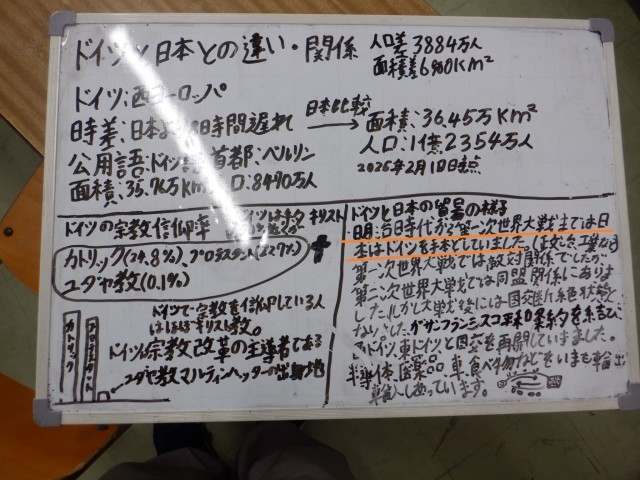 ドイツと日本との違い・関係
人口差3884万人
面積差6900km²
ドイツ:西ヨーロッパ
時差:日本より8時間遅れ
日本比較
公用語:ドイツ語 首都:ベルリン
面積:35.76万km² 人口:8470万人
面積:36.45万km²
人口:1億2354万人
2025年2月1日時点
ドイツの宗教信仰率
キリスト
カトリック(24.8%)プロテスタント(22.7%)
ユダヤ教(0.1%)
ドイツで宗教を信仰している人
はほぼキリスト教。
ドイツは宗教改革の主導者である
マルティンヘッターの出身地
カトリック
プロテスタント
ユダヤ教
ドイツと日本の貿易の様子
・明治時代から第一次世界大戦までは日
本はドイツを手本としていました。
第一次世界大戦では敵対関係でしたが
第二次世界大戦では同盟関係にありま
した。しかし大戦後には国交断絶状態と
なりました がサンフランシスコ平和条約を
西ドイツ、東ドイツと国交を再開していきました。
半導体、医薬品、車、食べ物などをいまも輸出
輸入しあっています。